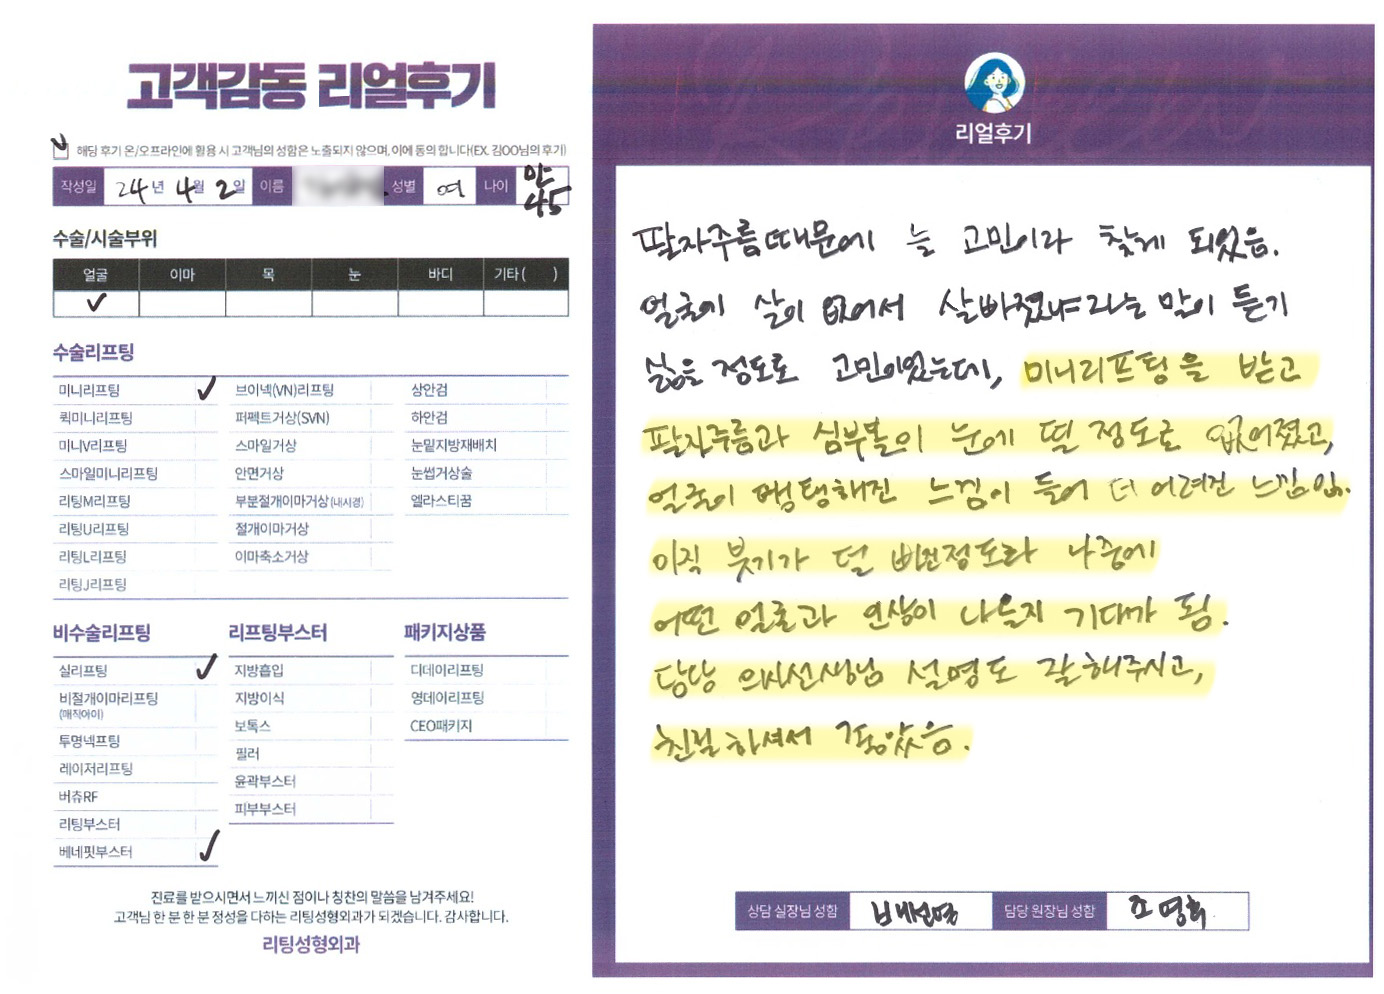 고객감동 리얼후기
해당 후기 온/오프라인에 활용 시 고객님의 성함은 노출되지 않으며, 이에 동의 합니다(EX. 김OO님의 후기)
작성일 24년 4월 2일 이름 성별 여 나이 만 45
수술/시술부위
얼굴 이마 목 눈 바디 기타 ( )
수술리프팅
미니리프팅 브이넥(VN)리프팅 상안검
퀵미니리프팅 퍼펙트거상(SVN) 하안검
미니V리프팅 스마일거상 눈밑지방재배치
스마일미니리프팅 안면거상 눈썹거상술
리팅M리프팅 부분절개이마거상 (내시경) 엘라스티꿈
리팅U리프팅 절개이마거상
리팅L리프팅 이마축소거상
리팅J리프팅
비수술리프팅 리프팅부스터 패키지상품
실리프팅 지방흡입 디데이리프팅
비절개이마리프팅 지방이식 영데이리프팅
(매직아이)
투명넥프팅 보톡스 CEO패키지
레이저리프팅 필러
버츄RF 윤곽부스터
리팅부스터 피부부스터
베네핏부스터
진료를 받으시면서 느끼신 점이나 칭찬의 말씀을 남겨주세요!
고객님 한 분 한 분 정성을 다하는 리팅성형외과가 되겠습니다. 감사합니다.
리팅성형외과
리얼후기
팔자주름때문에 늘 고민이라 찾게 되었음.
얼굴에 살이 없어서 살빠졌냐라는 말이 듣기
싫을 정도로 고민이었는데, 미니리프팅을 받고
팔자주름과 심부볼이 눈에 띌 정도로 없어졌고,
얼굴이 탱탱해진 느낌이 들어 더 어려진 느낌임.
아직 붓기가 덜 빠진정도라 나중에
어떤 얼굴과 인상이 나올지 기대가 됨.
담당 의사선생님 설명도 잘해주시고,
친절하셔서 좋았음.
상담 실장님 성함 담당 원장님 성함 조영휘